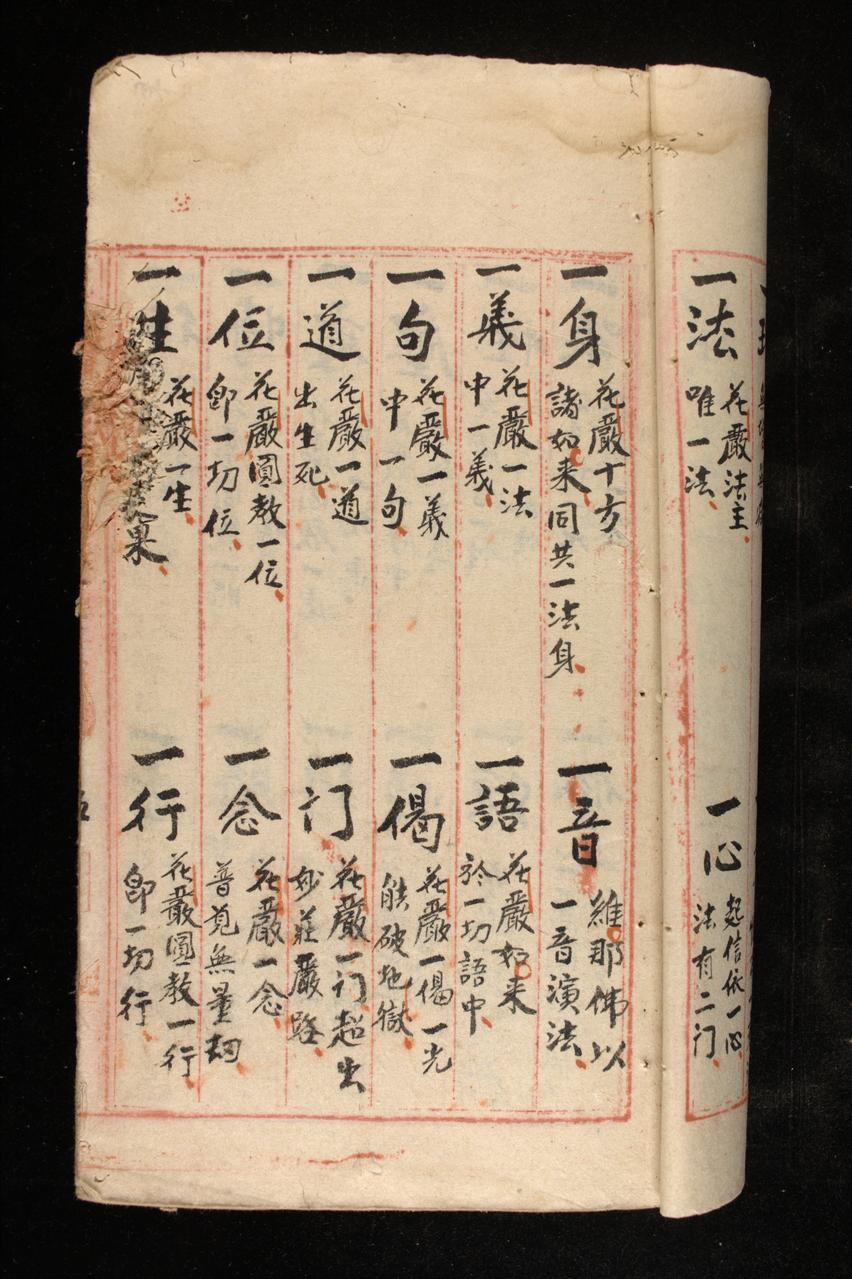 一法 花嚴法主
唯一法
一心 起信依一心
法有二门
一身 花嚴十方
諸如来同共一法身
一音 維那佛以
一音演法
一義 花嚴一法
中一義
一語 花嚴如来
於一切語中
一句 花嚴一義
中一句
一偈 花嚴一偈一光
能破地獄
一道 花嚴一道
出生死
一门 花嚴一门超出
妙莊嚴路
一位 花嚴圓教一位
卽一切位
一念 花嚴一念
普覓無量刼
一生 花嚴一生
果
一行 花嚴圓教一行
卽一切行